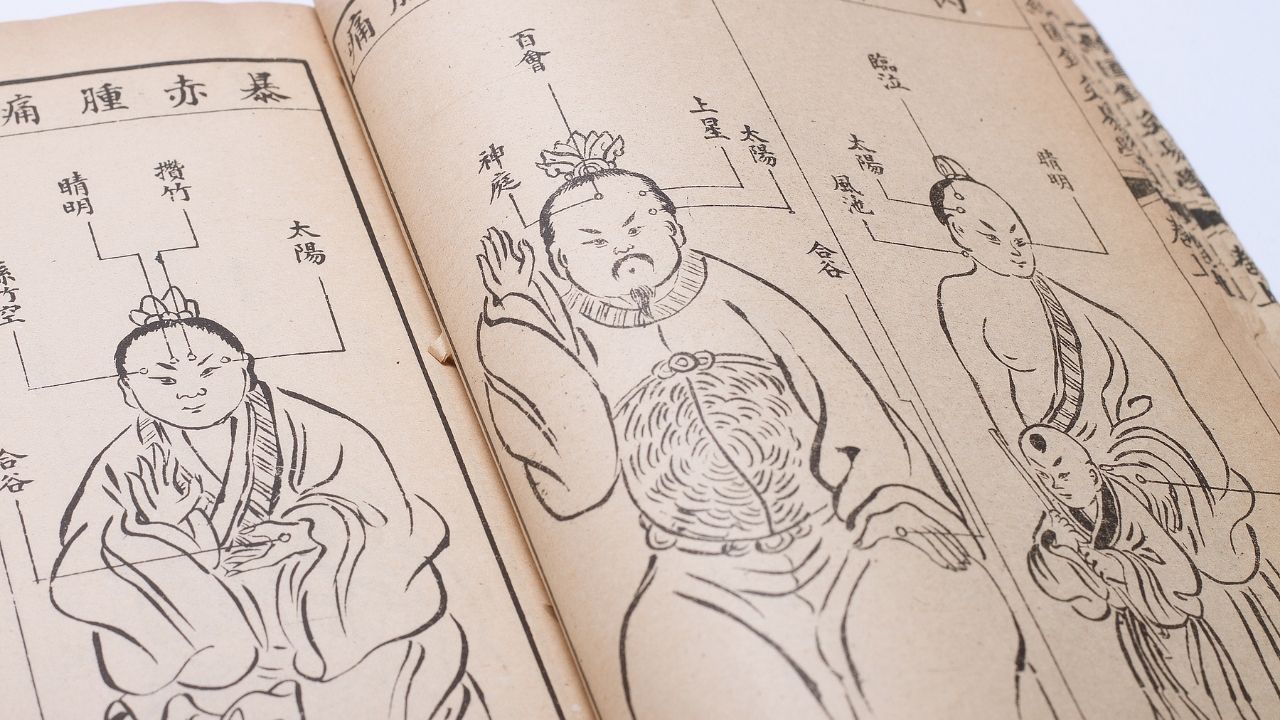 暴赤腫痛
太陽
攢竹
睛明
竹空
合谷
痛
臨泣
睛明
太陽
風池
百會
上星
太陽
神庭
合谷